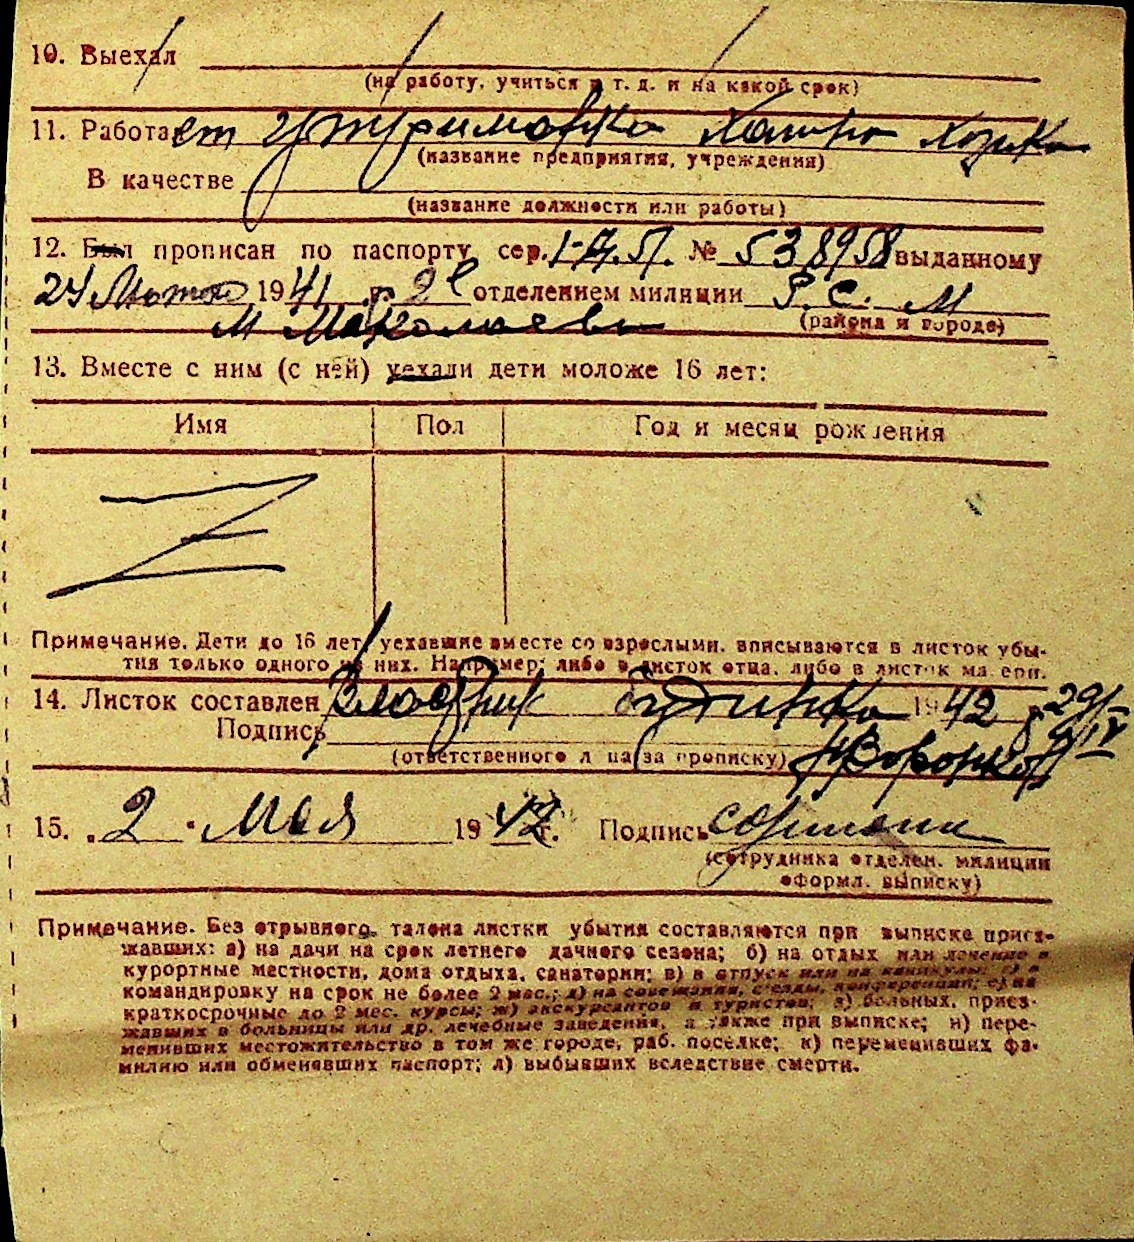 10. Выехал
(на работу, учиться и т. д. и на какой срок)
11. Работает утримовка хатнго
(название предприятия, учреждения)
В качестве
(название должности или работы)
12. Был прописан по паспорту сер. № 538958 выданному
24 Лютого 1941 г. 2е отделением милиции Р. С. М
м Маколаеві
(района и города)
13. Вместе с ним (с ней) уехали дети моложе 16 лет:
Имя Пол Год и месяц рождения
Примечание. Дети до 16 лет, уехавшие вместе со взрослыми, вписываются в листок убы-
тия только одного из них. Например: либо в листок отца, либо в листок матери.
14. Листок составлен Власник будинка 1942 г. 29/IV
Подпись
(ответственного лица за прописку)
15. „2" Мая 1942г. Подпись
(сотрудника отделен. милиции
оформл. выписку)
Примечание. Без отрывного талона листки убытия составляются при выписке приез-
жавших: а) на дачи на срок летнего дачного сезона; б) на отдых или лечение в
курортные местности, дома отдыха, санатории; в) в отпуск или на каникулы; г) в
командировку на срок не более 2 мес.; д) на совещания, съезды, конференции; е) на
краткосрочные до 2 мес. курсы; ж) экскурсантов и туристов; з) больных, приез-
жавших в больницы или др. лечебные заведения, а также при выписке; и) пере-
менивших местожительство в том же городе, раб. поселке; к) переменивших фа-
милию или обменявших паспорт; л) выбывших вследствие смерти.